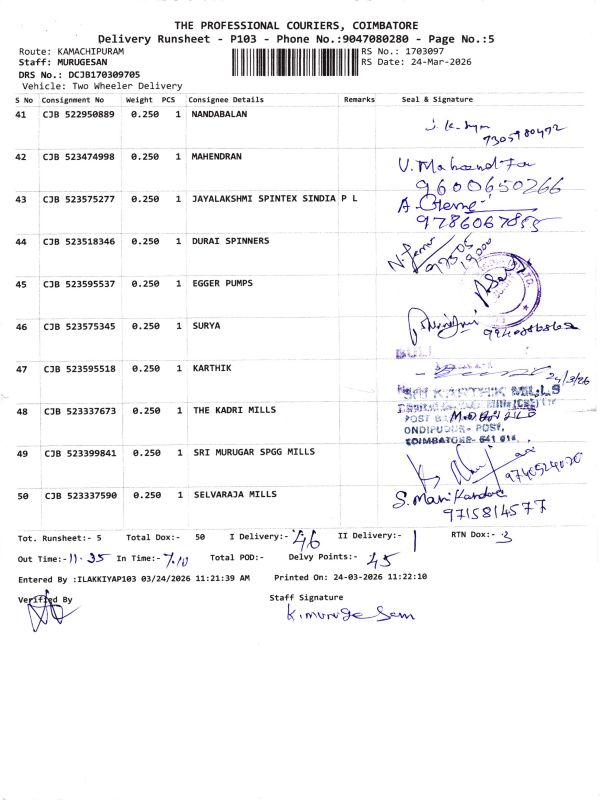 THE PROFESSIONAL COURIERS, COIMBATORE
Delivery Runsheet - P103 - Phone No.:9047080280 - Page No.:5
Route: KAMACHIPURAM RS No.: 1703097
Staff: MURUGESAN RS Date: 24-Mar-2026
DRS No.: DCJB170309705
Vehicle: Two Wheeler Delivery
S No Consignment No Weight PCS Consignee Details Remarks Seal & Signature
41 CJB 522950889 0.250 1 NANDABALAN
7305980492
42 CJB 523474998 0.250 1 MAHENDRAN
9600650266
43 CJB 523575277 0.250 1 JAYALAKSHMI SPINTEX SINDIA P L
9786067855
44 CJB 523518346 0.250 1 DURAI SPINNERS
45 CJB 523595537 0.250 1 EGGER PUMPS
46 CJB 523575345 0.250 1 SURYA
47 CJB 523595518 0.250 1 KARTHIK
24/3/26
SRI KARTHIK MILLS
48 CJB 523337673 0.250 1 THE KADRI MILLS
ONDIPUDUR - POST,
COIMBATORE- 641 016.
49 CJB 523399841 0.250 1 SRI MURUGAR SPGG MILLS
50 CJB 523337590 0.250 1 SELVARAJA MILLS
S. Manikandan
9715814577
Tot. Runsheet:- 5 Total Dox:- 50 I Delivery:- 46 II Delivery:- 1 RTN Dox:- 3
Out Time:- 11.35 In Time:- 7.10 Total POD:- Delvy Points:- 45
Entered By :ILAKKIYAP103 03/24/2026 11:21:39 AM Printed On: 24-03-2026 11:22:10
Verified By Staff Signature
K.murugesam